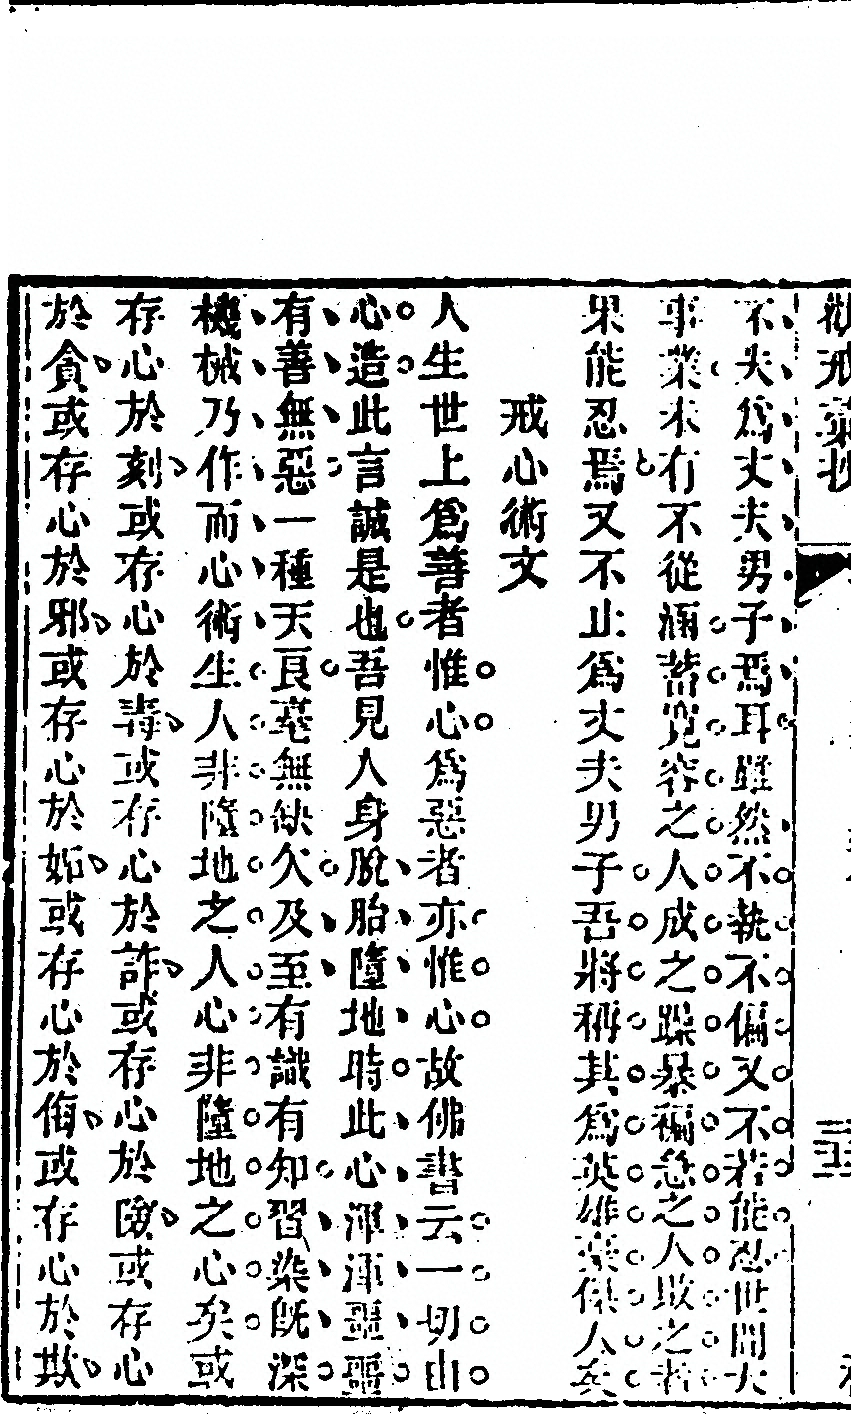 勸戒葊抄
不失爲丈夫男子焉耳雖然不執不偏又不若能忍世間大
事業未有不從涵蓄寬容之人成之躁暴褊急之人敗之者
果能忍焉又不止爲丈夫男子吾將稱其爲英雄豪傑人矣
戒心術文
人生世上爲善者惟心爲惡者亦惟心故佛書云一切由
心造此言誠是也吾見人身脫胎墮地時此心渾渾噩噩
有善無惡一種天良毫無缺欠及至有識有知習染旣深
機械乃作而心術生人非墮地之人心非墮地之心矣或
存心於刻或存心於毒或存心於詐或存心於險或存心
於貪或存心於邪或存心於妬或存心於侮或存心於欺